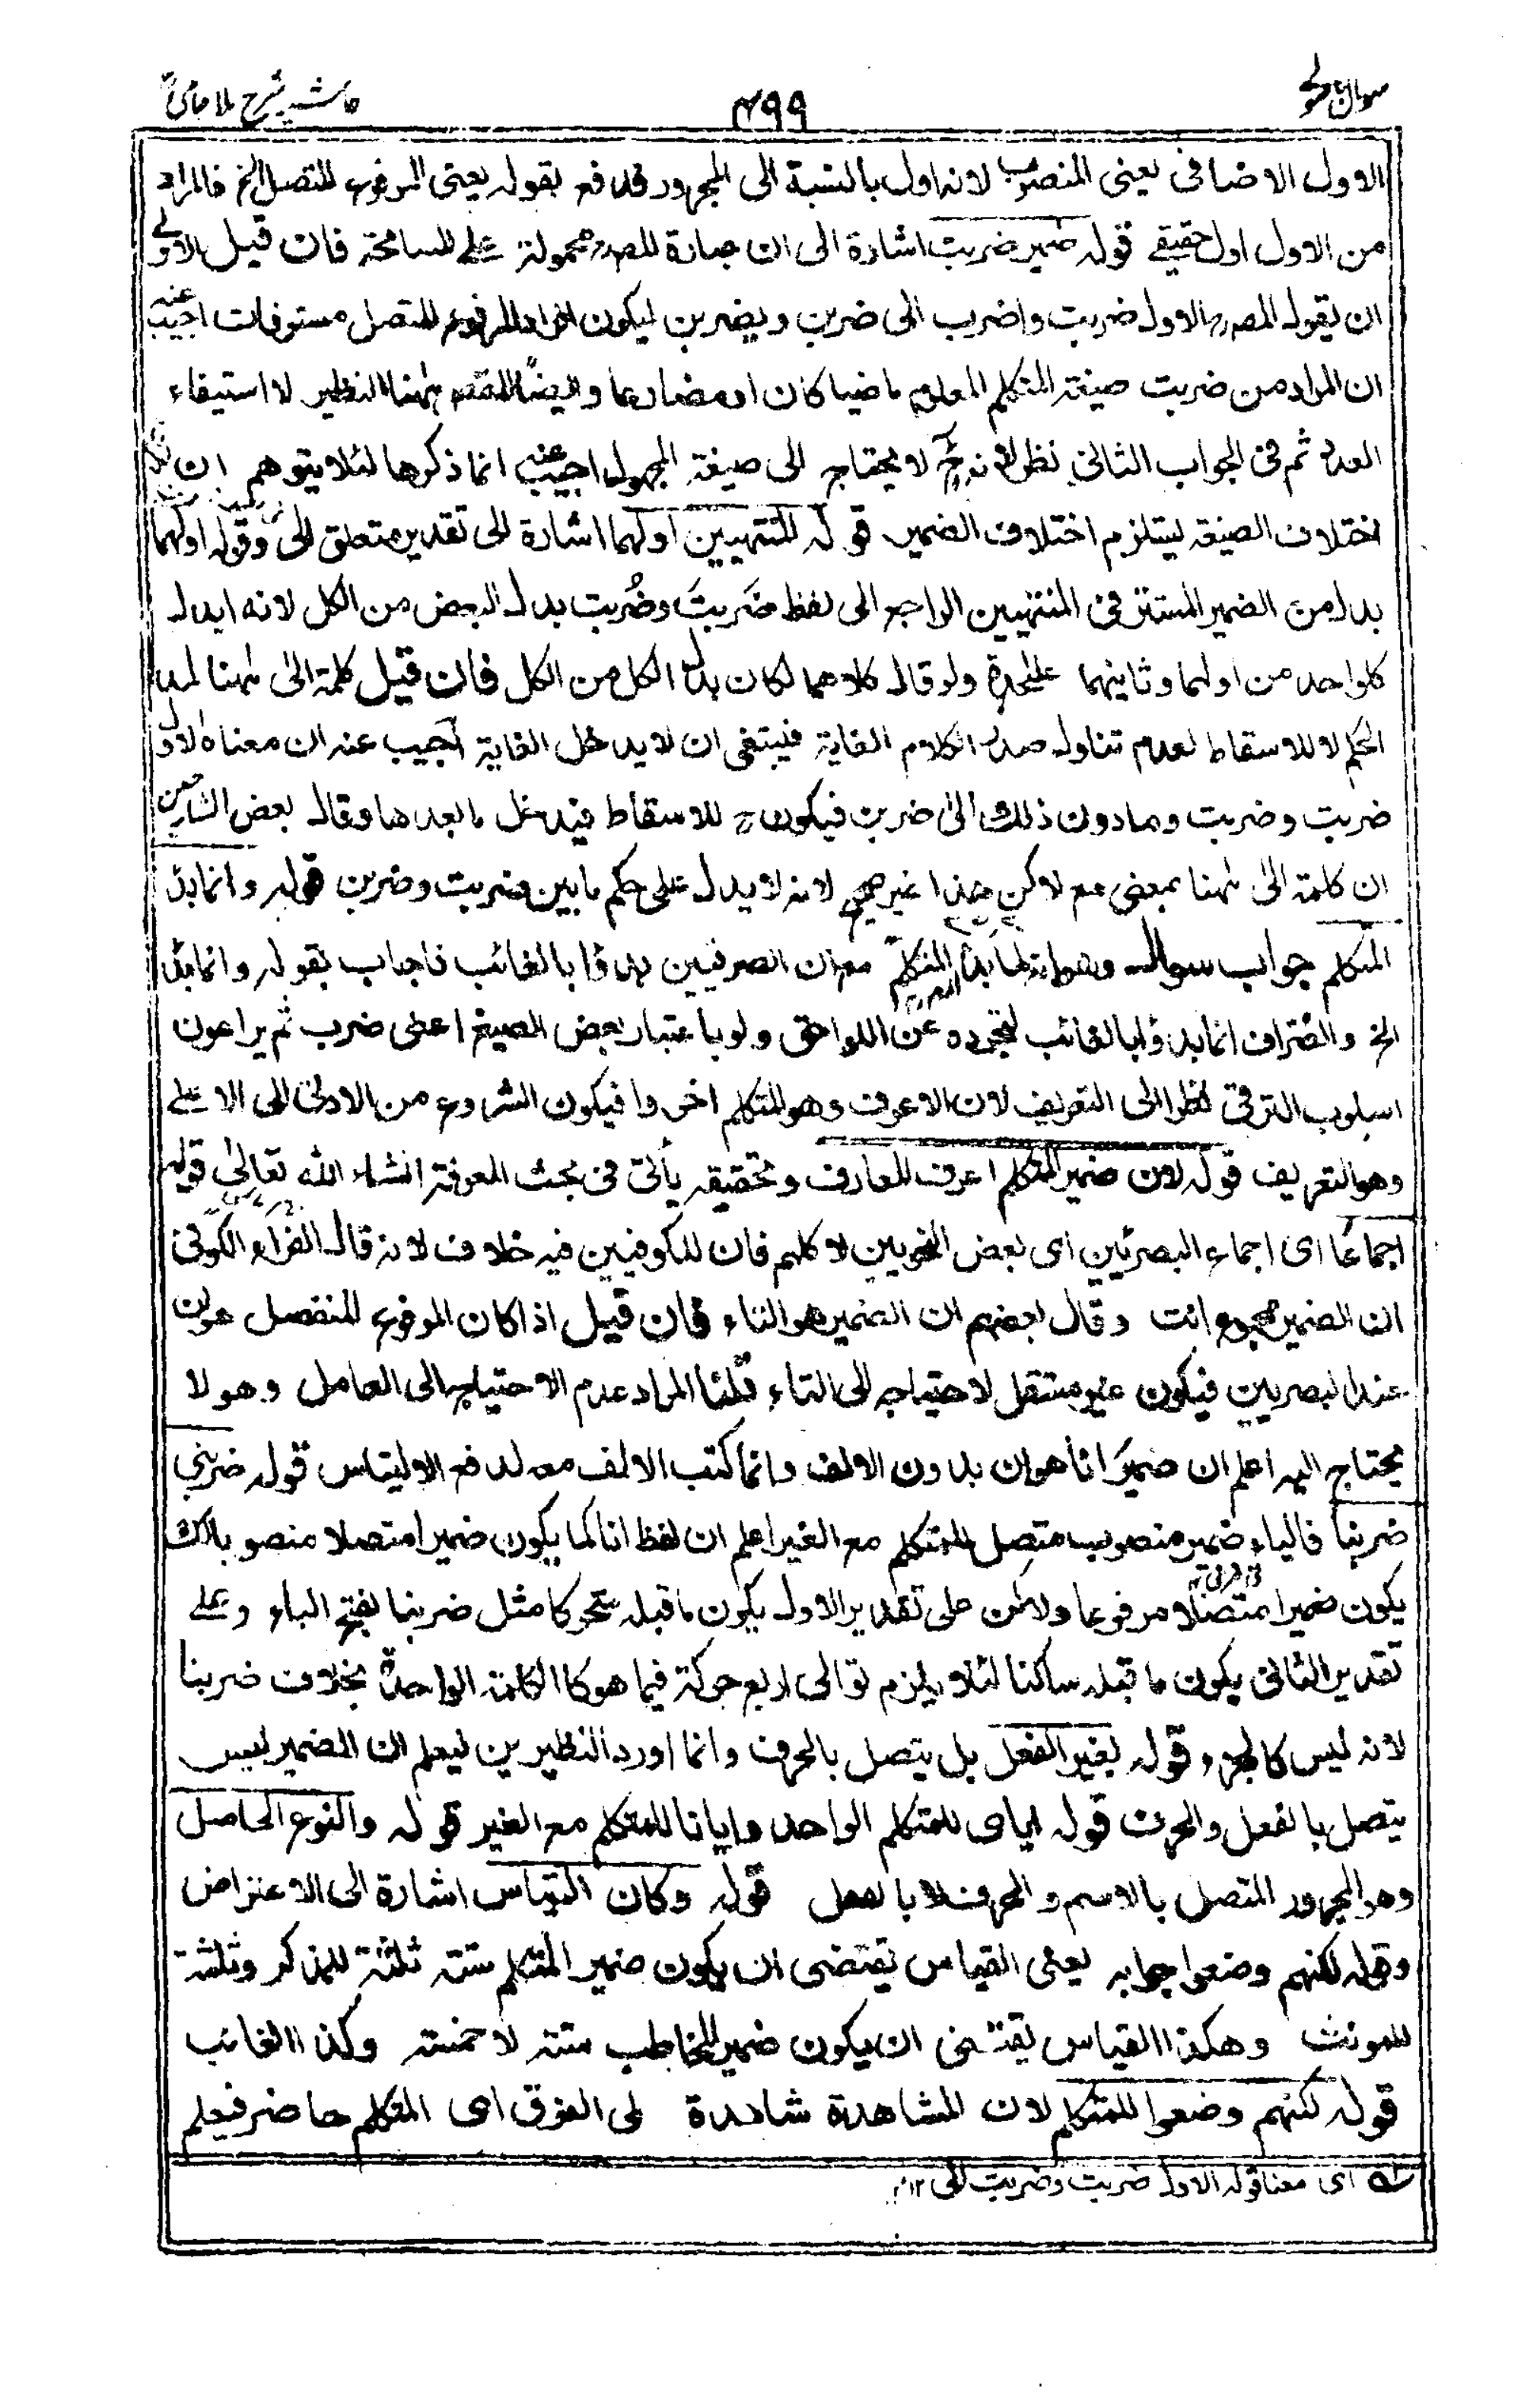 حاشیه شرح ملا جامی
۴۹۹
سوال
الاول الاضافی یعنی المنصوب لانه اول بالنسبة الی المجرور فدفع بقوله یعنی المرفوع المتصل الخ فالمراد
من الاول اول حقیقے قوله ضمیر ضربت اشارة الی ان عبارة المصر محمولة علے المسامحة فان قیل الاولے
ان یقول المصر الاول ضربت واضرب الی ضربن ویضربن لیکون افراد المرفوع المتصل مستوفات اجیب عنه
ان المراد من ضربت صیغة المتکلم المعلوم ماضیا کان او مضارعا وایضًا المقصود ههنا النظیر لا استیفاء
العدد ثم فی الجواب الثانی نظر لانه ح لا یحتاج الی صیغة المجهول اجیب عنه انما ذکرها لئلا یتوهم ان
اختلاف الصیغة یستلزم اختلاف الضمیر قوله المنتهیین اولهما اشارة الی تقدیر متعلق الی وقوله اولهما
بدل من الضمیر المستتر فی المنتهیین الراجع الی لفظ ضَربتَ وضُربت بدل البعض من الکل لانه ابدل
کلواحد من اولهما وثانیهما علیحدة ولو قال کلاهما لکان بدل الکل من الکل فان قیل کلمة الی ههنا لمد
الحکم لا للاسقاط لعدم تناول صدر الکلام الغایة فینبغی ان لا یدخل الغایة اجیب عنه ان معناه الاول
ضربت وضربت وما دون ذلک الی ضربن فیکون ح للاسقاط فیدخل ما بعدها وقال بعض الشارحین
ان کلمة الی ههنا بمعنی مع لاکن هذا غیر صحیح لانه لا یدل علی حکم ما بین ضربت وضربن قوله وانما بدئ
المتکلم جواب سوال وهو انه لما بدأ المتکلم مع ان الصرفیین بدؤا بالغائب فاجاب بقوله وانما بدئ
الخ والصّراف انما بدؤا بالغائب لتجرده عن اللواحق ولو باعتبار بعض الصیغ اعنی ضرب ثم یراعون
اسلوب الترقی نظرا الی التعریف لان الاعرف وهو المتکلم اخروا فیکون الشروع من الادنی الی الاعلے
وهو التعریف قوله لان ضمیر المتکلم اعرف المعارف وتحقیقه یأتی فی بحث المعرفة انشاء الله تعالی قوله
اجماعًا ای اجماع البصریین ای بعض النحویین لا کلهم فان للکوفیین فیه خلاف لانه قال الفراء الکوفی
ان الضمیر مجموع انت وقال بعضهم ان الضمیر هو التاء فان قیل اذا کان المرفوع المنفصل هو ان
عند البصریین فیکون غیر مستقل لاحتیاجه الی التاء قلنا المراد عدم الاحتیاج الی العامل وهو لا
یحتاج الیه اعلم ان ضمیر انا هو ان بدون الالف وانما کتب الالف معه لدفع الالتباس قوله ضربنی
ضربنا فالیاء ضمیر منصوب متصل للمتکلم مع الغیر اعلم ان لفظ انا کما یکون ضمیرا متصلا منصوبا کذلک
یکون ضمیرا متصلا مرفوعا ولاکن علی تقدیر الاول یکون ما قبله متحرکا مثل ضربنا بفتح الباء وعلے
تقدیر الثانی یکون ما قبله ساکنا لئلا یلزم توالی اربع حرکة فیما هو کالکلمة الواحدة بخلاف ضربنا
لانه لیس کالجزء قوله بغیر الفعل بل یتصل بالحرف وانما اورد النظیرین لیعلم ان الضمیر لیس
یتصل بالفعل والحرف قوله ایای للمتکلم الواحد وایانا للمتکلم مع الغیر قوله والنوع الحاصل
وهو المجرور المتصل بالاسم والحرف لا بالفعل قوله وکان القیاس اشارة الی الاعتراض
وقوله لکنهم وضعوا جوابه یعنی القیاس یقتضی ان یکون ضمیر المتکلم ستة ثلثة للمذکر وثلثة
للمونث وهکذا القیاس یقتضی ان یکون ضمیر المخاطب ستة لا خمسة وکذا الغائب
قوله لکنهم وضعوا للمتکلم لان المشاهدة شاهدة لی الفرق ای المتکلم حاضر فیعلم
ای معنا قوله الاول ضربت وضربت الی ۱۲